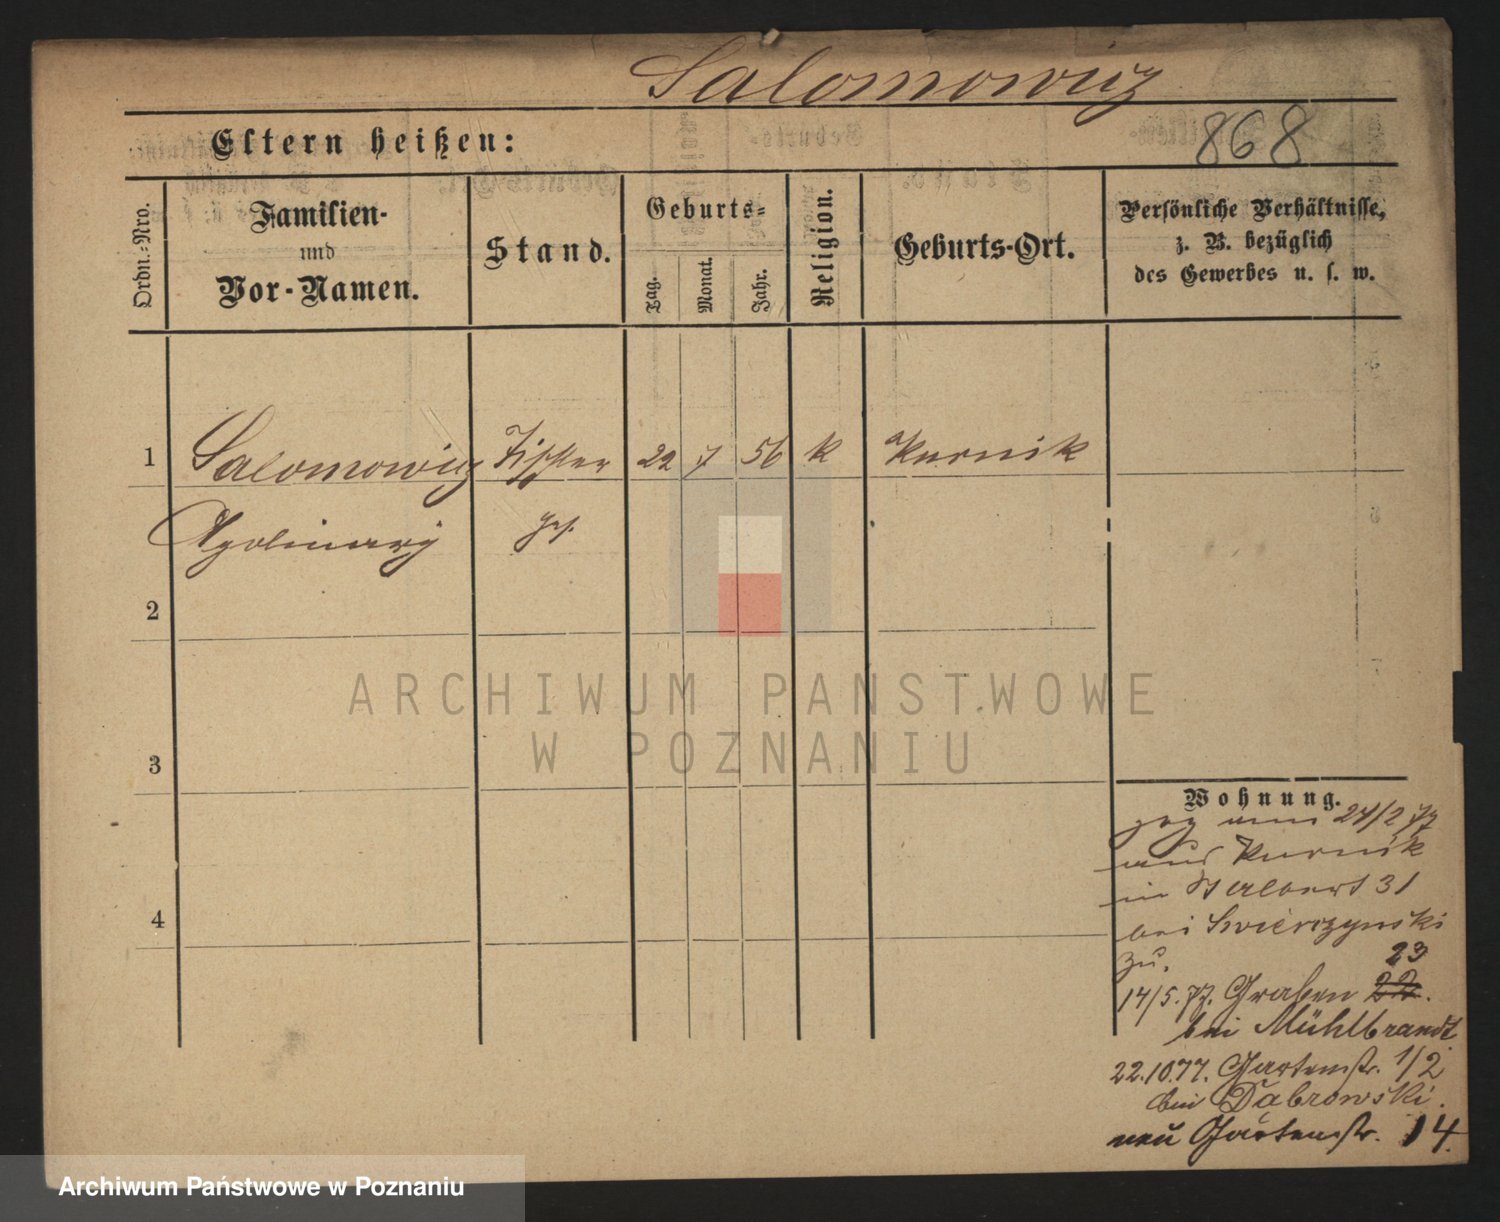 Salomowicz
Eltern heißen:
868
Ordn.-Nro.
Familien-
und
Vor-Namen.
Stand.
Geburts-
Tag.
Monat.
Jahr.
Religion.
Geburts-Ort.
Persönliche Verhältnisse,
z. B. bezüglich
des Gewerbes u. s. w.
1 Salomowicz Tischler 22 7 56 k Kurnik
Apolinary
2
3
4
ARCHIWUM PAŃSTWOWE
W POZNANIU
Wohnung.
zog am 24/2 77
aus Kurnik
in St Adalbert 31
bei Swierczynski
zu.
23
14/5. 77. Graben 22.
bei Mühlbrandt
22.10.77. Gartenstr. 1/2
bei Dabrowski.
neu Gartenstr. 14.
Archiwum Państwowe w Poznaniu